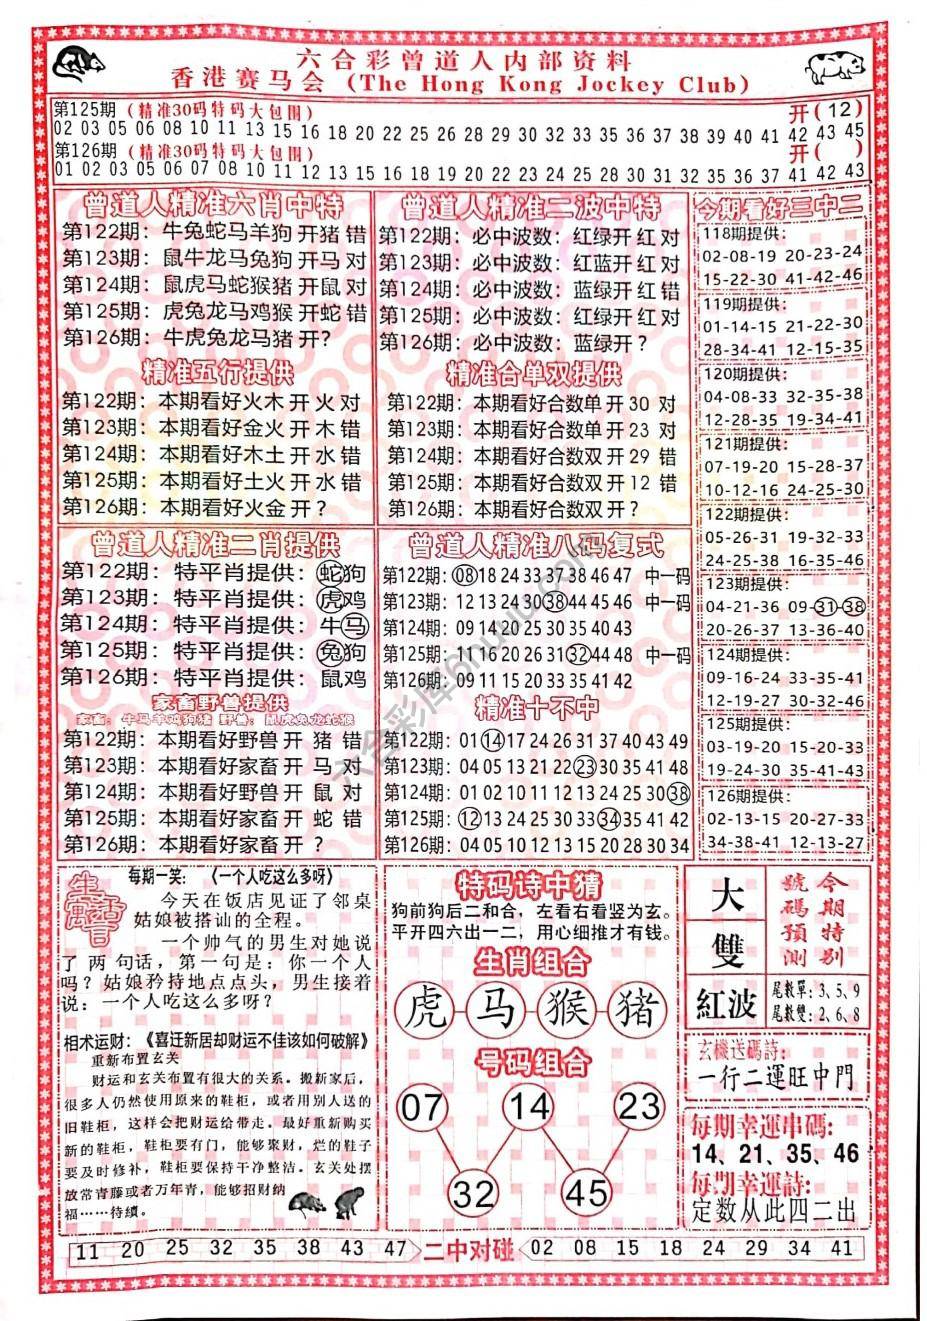 六合彩曾道人内部资料
香港赛马会 (The Hong Kong Jockey Club)
第125期 (精准30码特码大包围) 开(12)
02 03 05 06 08 10 11 13 15 16 18 20 22 25 26 28 29 30 32 33 35 36 37 38 39 40 41 42 43 45
第126期 (精准30码特码大包围) 开( )
01 02 03 05 06 07 08 10 11 12 13 15 16 18 19 20 22 23 24 25 28 30 31 32 35 36 37 41 42 43
曾道人精准六肖中特
第122期：牛兔蛇马羊狗开猪 错
第123期：鼠牛龙马兔狗开马 对
第124期：鼠虎马蛇猴猪开鼠 对
第125期：虎兔龙马鸡猴开蛇 错
第126期：牛虎兔龙马猪开?
精准五行提供
第122期：本期看好火木 开 火 对
第123期：本期看好金火 开 木 错
第124期：本期看好木土 开 水 错
第125期：本期看好土火 开 水 错
第126期：本期看好火金 开 ?
曾道人精准二波中特
第122期：必中波数：红绿开 红 对
第123期：必中波数：红蓝开 红 对
第124期：必中波数：蓝绿开 红 错
第125期：必中波数：红绿开 红 对
第126期：必中波数：蓝绿开 ?
精准合单双提供
第122期：本期看好合数单 开 30 对
第123期：本期看好合数单 开 23 对
第124期：本期看好合数双 开 29 错
第125期：本期看好合数双 开 12 错
第126期：本期看好合数双 开 ?
今期看好三中二
118期提供：
02-08-19 20-23-24
15-22-30 41-42-46
119期提供：
01-14-15 21-22-30
28-34-41 12-15-35
120期提供：
04-08-33 32-35-38
12-28-35 19-34-41
121期提供：
07-19-20 15-28-37
10-12-16 24-25-30
122期提供：
05-26-31 19-32-33
24-25-38 16-35-46
123期提供：
04-21-36 09-31-38
20-26-37 13-36-40
124期提供：
09-16-24 33-35-41
12-19-27 30-32-46
125期提供：
03-19-20 15-20-33
19-24-30 35-41-43
126期提供：
02-13-15 20-27-33
34-38-41 12-13-27
曾道人精准二肖提供
第122期：特平肖提供：蛇狗
第123期：特平肖提供：虎鸡
第124期：特平肖提供：牛马
第125期：特平肖提供：兔狗
第126期：特平肖提供：鼠鸡
家畜野兽提供
家畜：牛马羊鸡狗猪 野兽：鼠虎兔龙蛇猴
第122期：本期看好野兽 开 猪 错
第123期：本期看好家畜 开 马 对
第124期：本期看好野兽 开 鼠 对
第125期：本期看好家畜 开 蛇 错
第126期：本期看好家畜 开 ?
曾道人精准八码复式
第122期：08 18 24 33 37 38 46 47 中一码
第123期：12 13 24 30 38 44 45 46 中一码
第124期：09 14 20 25 30 35 40 43
第125期：11 16 20 26 31 32 44 48 中一码
第126期：09 11 15 20 33 35 41 42
精准十不中
第122期：01 14 17 24 26 31 37 40 43 49
第123期：04 05 13 21 22 23 30 35 41 48
第124期：01 02 10 11 12 13 24 25 30 38
第125期：12 13 24 25 30 33 34 35 41 42
第126期：04 05 10 12 13 15 20 28 30 34
六合彩库6huu.com
生活寓言
每期一笑：〈一个人吃这么多呀〉
今天在饭店见证了邻桌
姑娘被搭讪的全程。
一个帅气的男生对她说
了两句话，第一句是：你一个人
吗？姑娘矜持地点点头，男生接着
说：一个人吃这么多呀？
相术运财：《喜迁新居却财运不佳该如何破解》
重新布置玄关
财运和玄关布置有很大的关系。搬新家后，
很多人仍然使用原来的鞋柜，或者用别人送的
旧鞋柜，这样会把财运给带走。最好重新购买
新的鞋柜，鞋柜要有门，能够聚财，烂的鞋子
要及时修补，鞋柜要保持干净整洁。玄关处摆
放常青藤或者万年青，能够招财纳
福……待续。
特码诗中猜
狗前狗后二和合，左看右看竖为玄。
平开四六出一二，用心细推才有钱。
生肖组合
虎 马 猴 猪
号码组合
07 14 23
32 45
大
雙
紅波
今期特别
號碼預測
尾數單：3、5、9
尾數雙：2、6、8
玄機送碼詩：
一行二運旺中門
每期幸運串碼：
14、21、35、46
每期幸運詩：
定数从此四二出
11 20 25 32 35 38 43 47 二中对碰 02 08 15 18 24 29 34 41